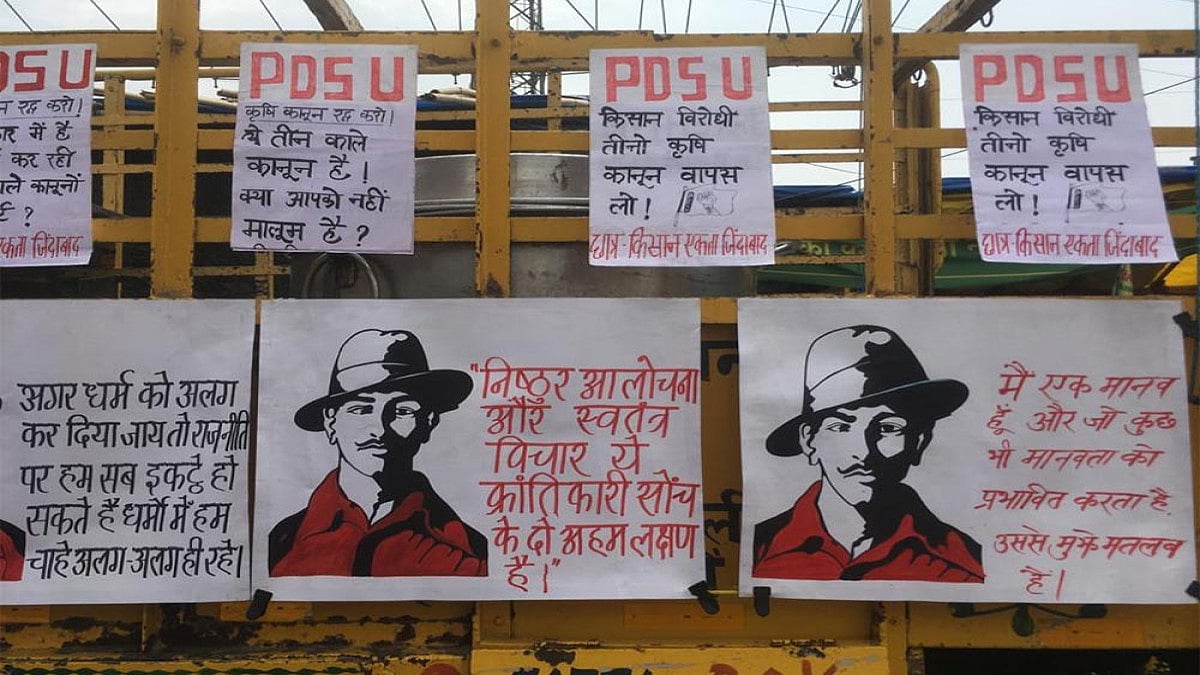 PDSU
रद्द करो!
में है
कर रही
काले कानूनों
?
एकता जिंदाबाद
PDSU
कृषि कानून रद्द करो!
ये तीन काले
कानून है!
क्या आपको नहीं
मालूम है?
PDSU
किसान विरोधी
तीनो कृषि
कानून वापस
लो!
छात्र-किसान एकता जिंदाबाद
PDSU
किसान विरोधी
तीनो कृषि
कानून वापस
लो!
छात्र-किसान एकता जिंदाबाद
अगर धर्म को अलग
कर दिया जाय तो राजनीति
पर हम सब इकट्ठे हो
सकते हैं धर्मो में हम
चाहे अलग-अलग ही रहे।
"निष्ठुर आलोचना
और स्वतंत्र
विचार ये
क्रांतिकारी सोंच
के दो अहम लक्षण
है।"
मैं एक मानव
हूँ और जो कुछ
भी मानवता को
प्रभावित करता है
उससे मुझे मतलब
है।